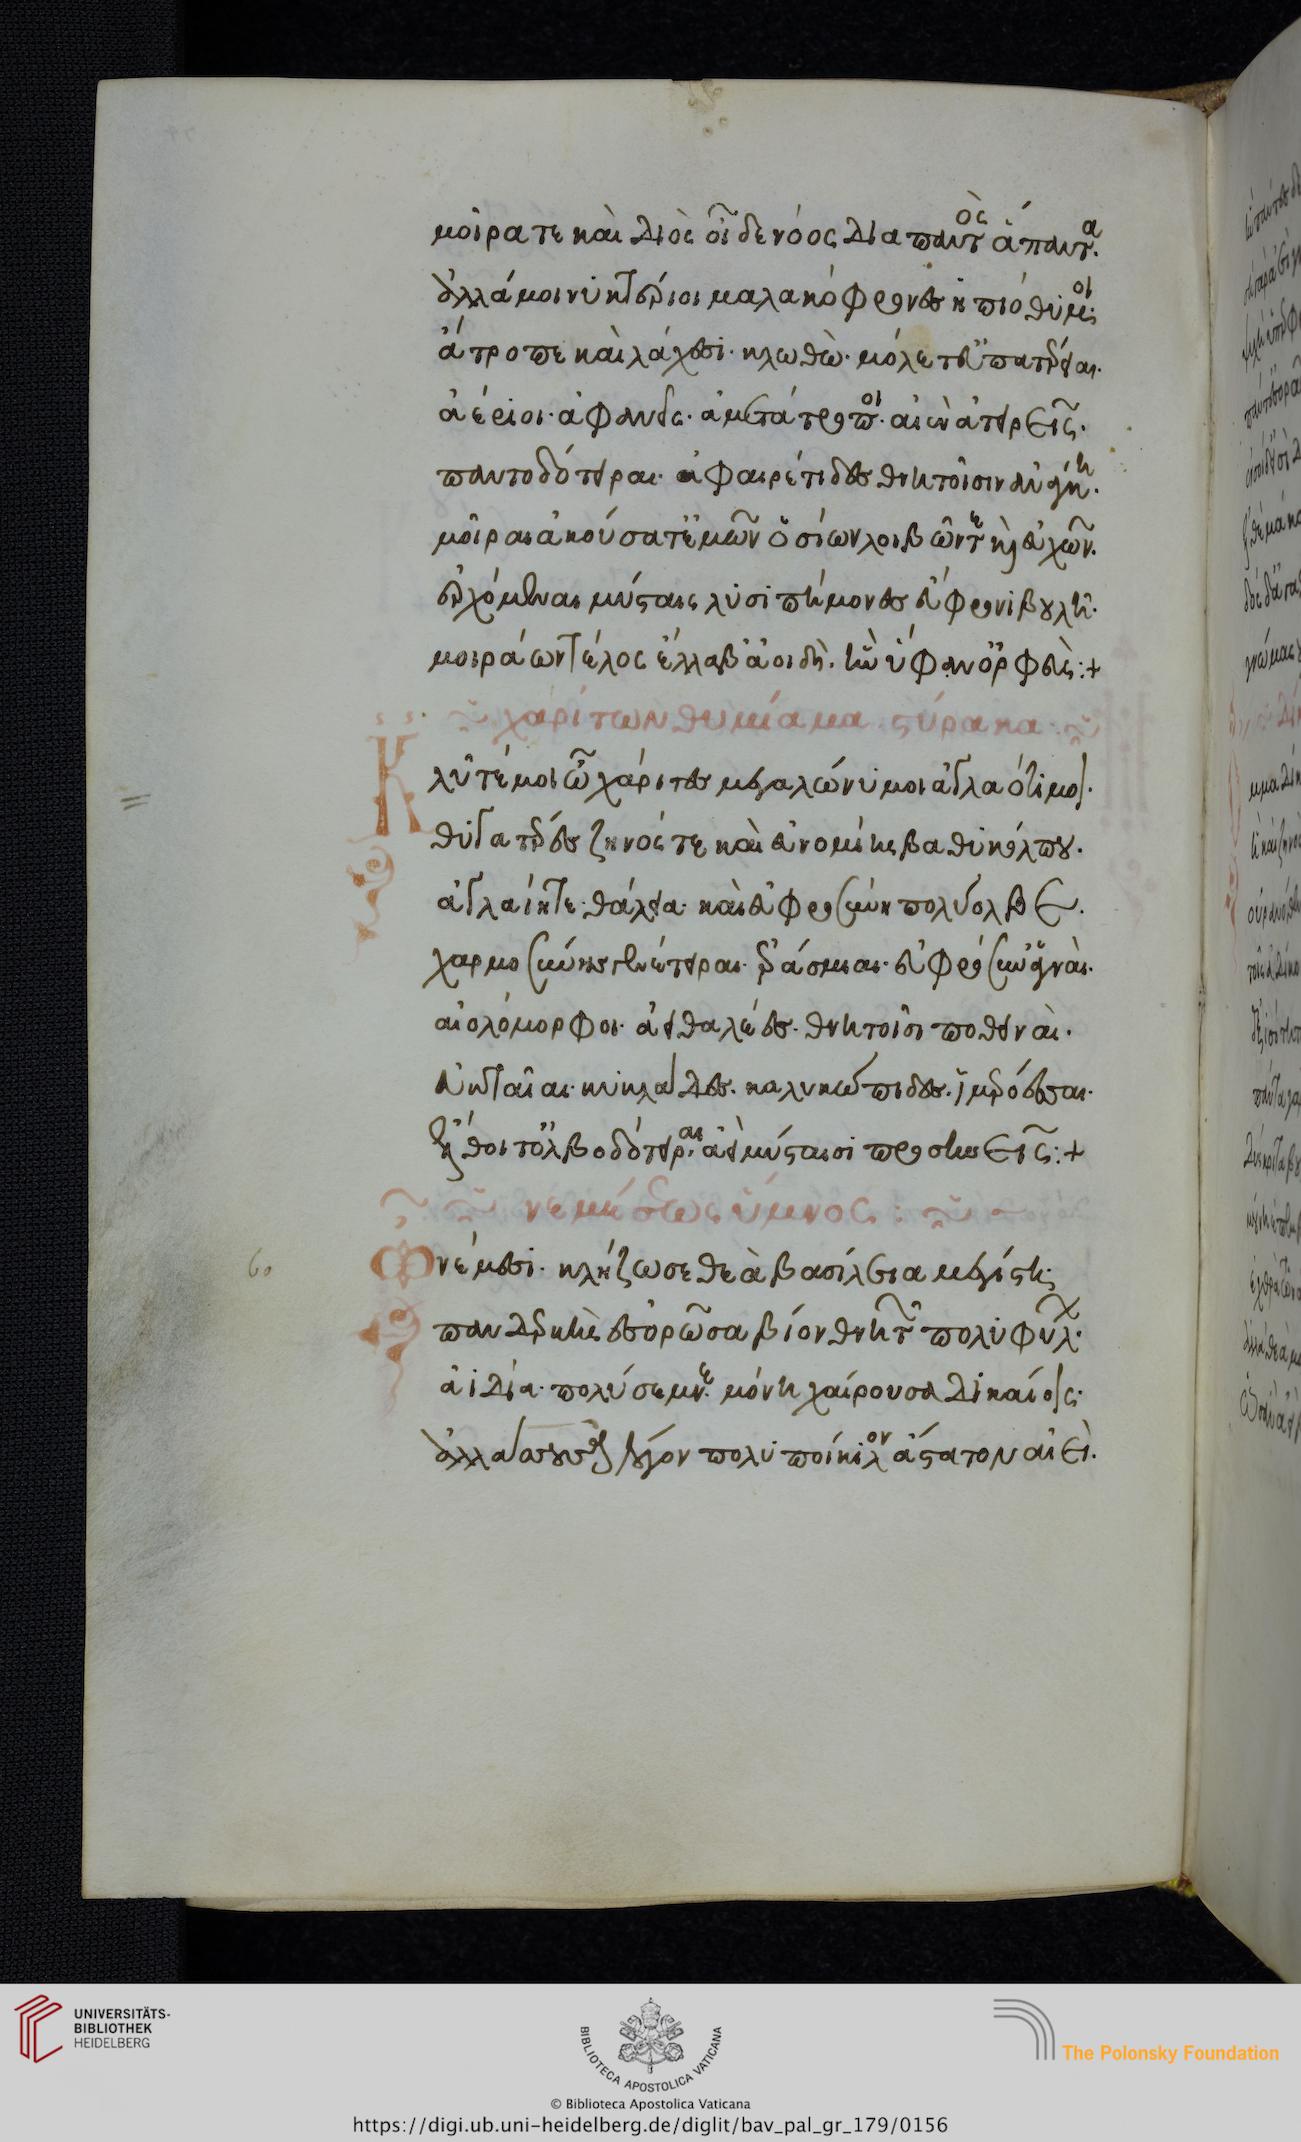 μοῖρα τε καὶ Διὸς οἶδε νόος δια παντὸς ἅπαντα.
ἀλλά μοι νυκτέριοι μαλακόφρονες ἠπιόθυμοι.
ἄτροπε καὶ λάχεσι. κλωθὼ. μόλετ εὐπατέρειαι.
ἀέριοι. ἀφανεῖς. ἀμετάτροποι. αἰὲν ἀτειρεῖς.
παντοδότειραι. ἀφαιρέτιδες θνητοῖσιν ἀνάγκη.
μοῖραι ἀκούσατ ἐμῶν ὁσίων λοιβῶν τε καὶ εὐχῶν.
ἐρχόμεναι μύσταις λυσιπήμονες εὔφρονι βουλῆ.
μοιράων τέλος ἔλλαβ ἀοιδὴ. ἣν ὕφαν ὀρφεὺς:+
χαρίτων θυμίαμα στύρακα
Κλῦτέ μοι ὦ χάριτες μεγαλώνυμοι ἀγλαότιμοι.
θυγατέρες ζηνός τε καὶ εὐνομίης βαθυκόλπου.
ἀγλαΐη τε. θάλεια. καὶ εὐφροσύνη πολύολβε.
χαρμοσύνης γενέτειραι. ἐράσμιαι. εὔφρονες ἁγναὶ.
αἰολόμορφοι. ἀειθαλέες. θνητοῖσι ποθειναὶ.
εὐκταῖαι. κυκλάδες. καλυκώπιδες. ἱμερόεσσαι.
ἔλθοιτ ὀλβοδότειραι. ἀεὶ μύσταισι προσηνεῖς:+
νεμέσεως ὕμνος:
Ὦ νέμεσι. κλῄζω σε θεὰ βασίλεια μεγίστη.
πανδερκὴς ἐσορῶσα βίον θνητῶν πολυφύλων.
ἀϊδία. πολύσεμνε. μόνη χαίρουσα δικαίοις.
60
ἀλλάσσουσα λόγον πολυποίκιλον ἄστατον αἰεὶ.
UNIVERSITÄTS-
BIBLIOTHEK
HEIDELBERG
BIBLIOTECA APOSTOLICA VATICANA
The Polonsky Foundation
© Biblioteca Apostolica Vaticana
https://digi.ub.uni-heidelberg.de/diglit/bav_pal_gr_179/0156